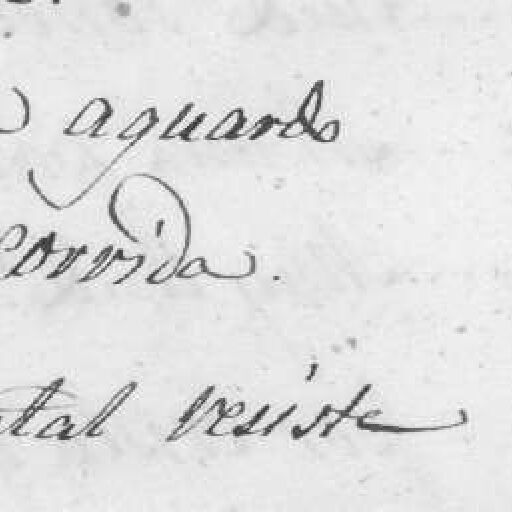 aguardo
corrida.
tal resiste